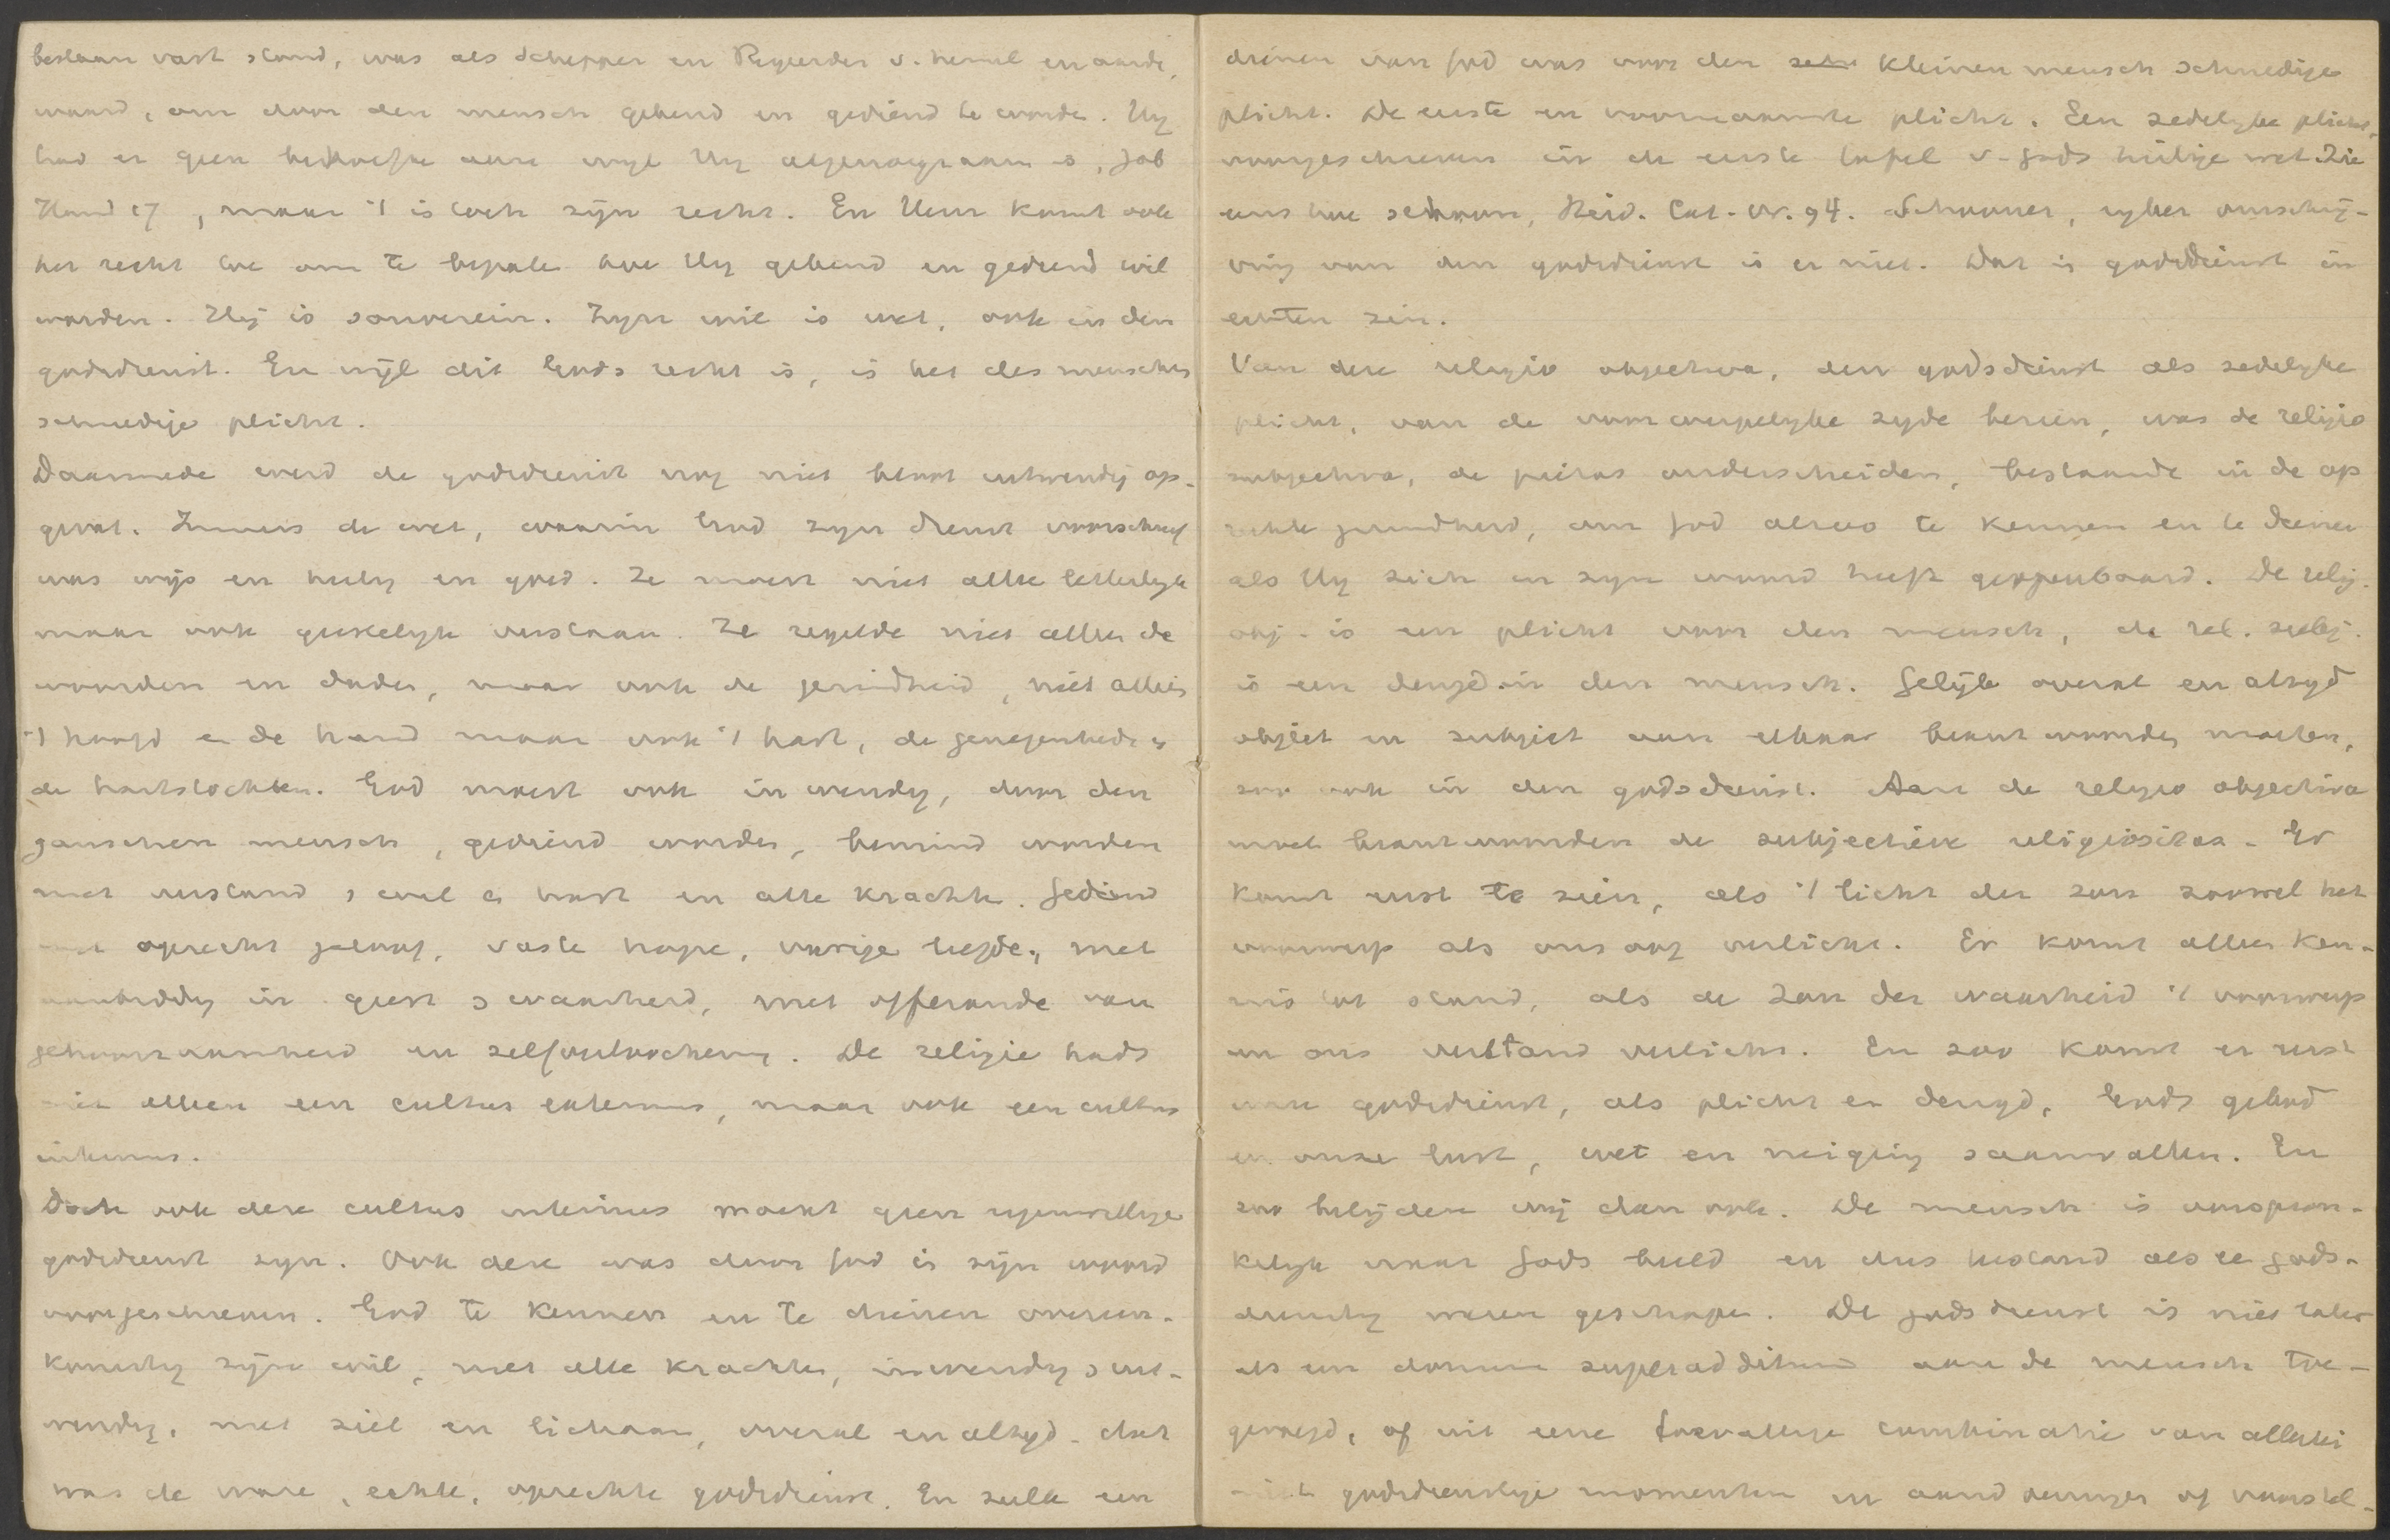 bestaan vast stond, was als Schepper en Regeerder v. hemel en aarde,
waard, om door den mensch gekend en gediend te worde. Hij
had er geen behoefte aan wijl Hij algenoegzaam is, Job
Hand 17, maar 't is toch zijn recht. En Hem komt ook
het recht toe om te bepale hoe Hij gekend en gediend wil
worden. Hij is souverein. Zijn wil is wet, ook in den
godsdienst. En wijl dit Gods recht is, is het des menschen
plicht.
Daarmede werd de godsdienst nog niet bloot uitwendig op-
gevat. Immers de wet, waarin God zijn dienst voorschreef
was wijs en heilig en goed. Ze moest niet alleen letterlijk
maar ook geestelijk verstaan. Ze regelde niet alleen de
woorden en daden, maar ook de gezindheid, niet alleen
't hoofd en de hand maar ook 't hart, de genegenheden en
de hartstochten. God moest ook inwendig, door den
ganschen mensch, gediend worden, bemind worden
met verstand en wil en hart en alle krachten. Gediend
met oprecht geloof, vaste hope, vurige liefde, met
aanbidding in geest en waarheid, met offerande van
gehoorzaamheid en zelfverloochening. De religie had
niet alleen een cultus externus, maar ook een cultus
internus.
Doch ook deze cultus internus mocht geen eigenwillige
godsdienst zijn. Ook deze was door God in zijn woord
voorgeschreven. God te kennen en te dienen overeen-
komstig zijn wil, met alle krachten, inwendig en uit-
wendig, met ziel en lichaam, overal en altijd - dat
was de ware, echte, oprechte godsdienst. En zulk een
dienen van God was voor den kleinen mensch
plicht. De eerste en voornaamste plicht. Een zedelijke plicht,
voorgeschreven in de eerste tafel v. Gods heilige wet. Zie
eens hoe schoon, Heid. Cat. Vr. 94. Schooner, rijker omschrij-
ving van den godsdienst is er niet. Dat is godsdienst in
echten zin.
Van deze religio objectiva, den godsdienst als zedelijke
plicht, van de voorwerpelijke zijde bezien, was de religio
subjectiva, de pietas onderscheiden, bestaande in de op
rechte gezindheid, om God alzoo te kennen en te dienen
als Hij zich in zijn woord heeft geopenbaard. De relig.
obj. is een plicht voor den mensch, de rel. subj.
is een deugd in den mensch. Gelijk overal en altijd
object en subject aan elkaar beantwoorden moeten,
zoo ook in den godsdienst. Aan de religio objectiva
moet beantwoorden de subjectieve religiositas. Er
komt eerst te zien, als 't licht der zon zoowel het
voorwerp als ons oog verlicht. Er komt alleen ken-
nis tot stand, als de Zon der waarheid 't voorwerp
en ons verstand verlicht. En zoo komt er eerst
ware godsdienst, als plicht en deugd, Gods gebod
en onze lust, wet en neiging saamvallen. En
zoo belijden wij dan ook. De mensch is oorspron-
kelijk naar Gods beeld en dus bestond als een gods-
dienstig wezen geschapen. De godsdienst is niet later
als een donum superadditum aan de mensch toe-
gevoegd, of uit eene toevallige combinatie van allerlei
niet godsdienstige momenten en aandoeningen of voorstel-